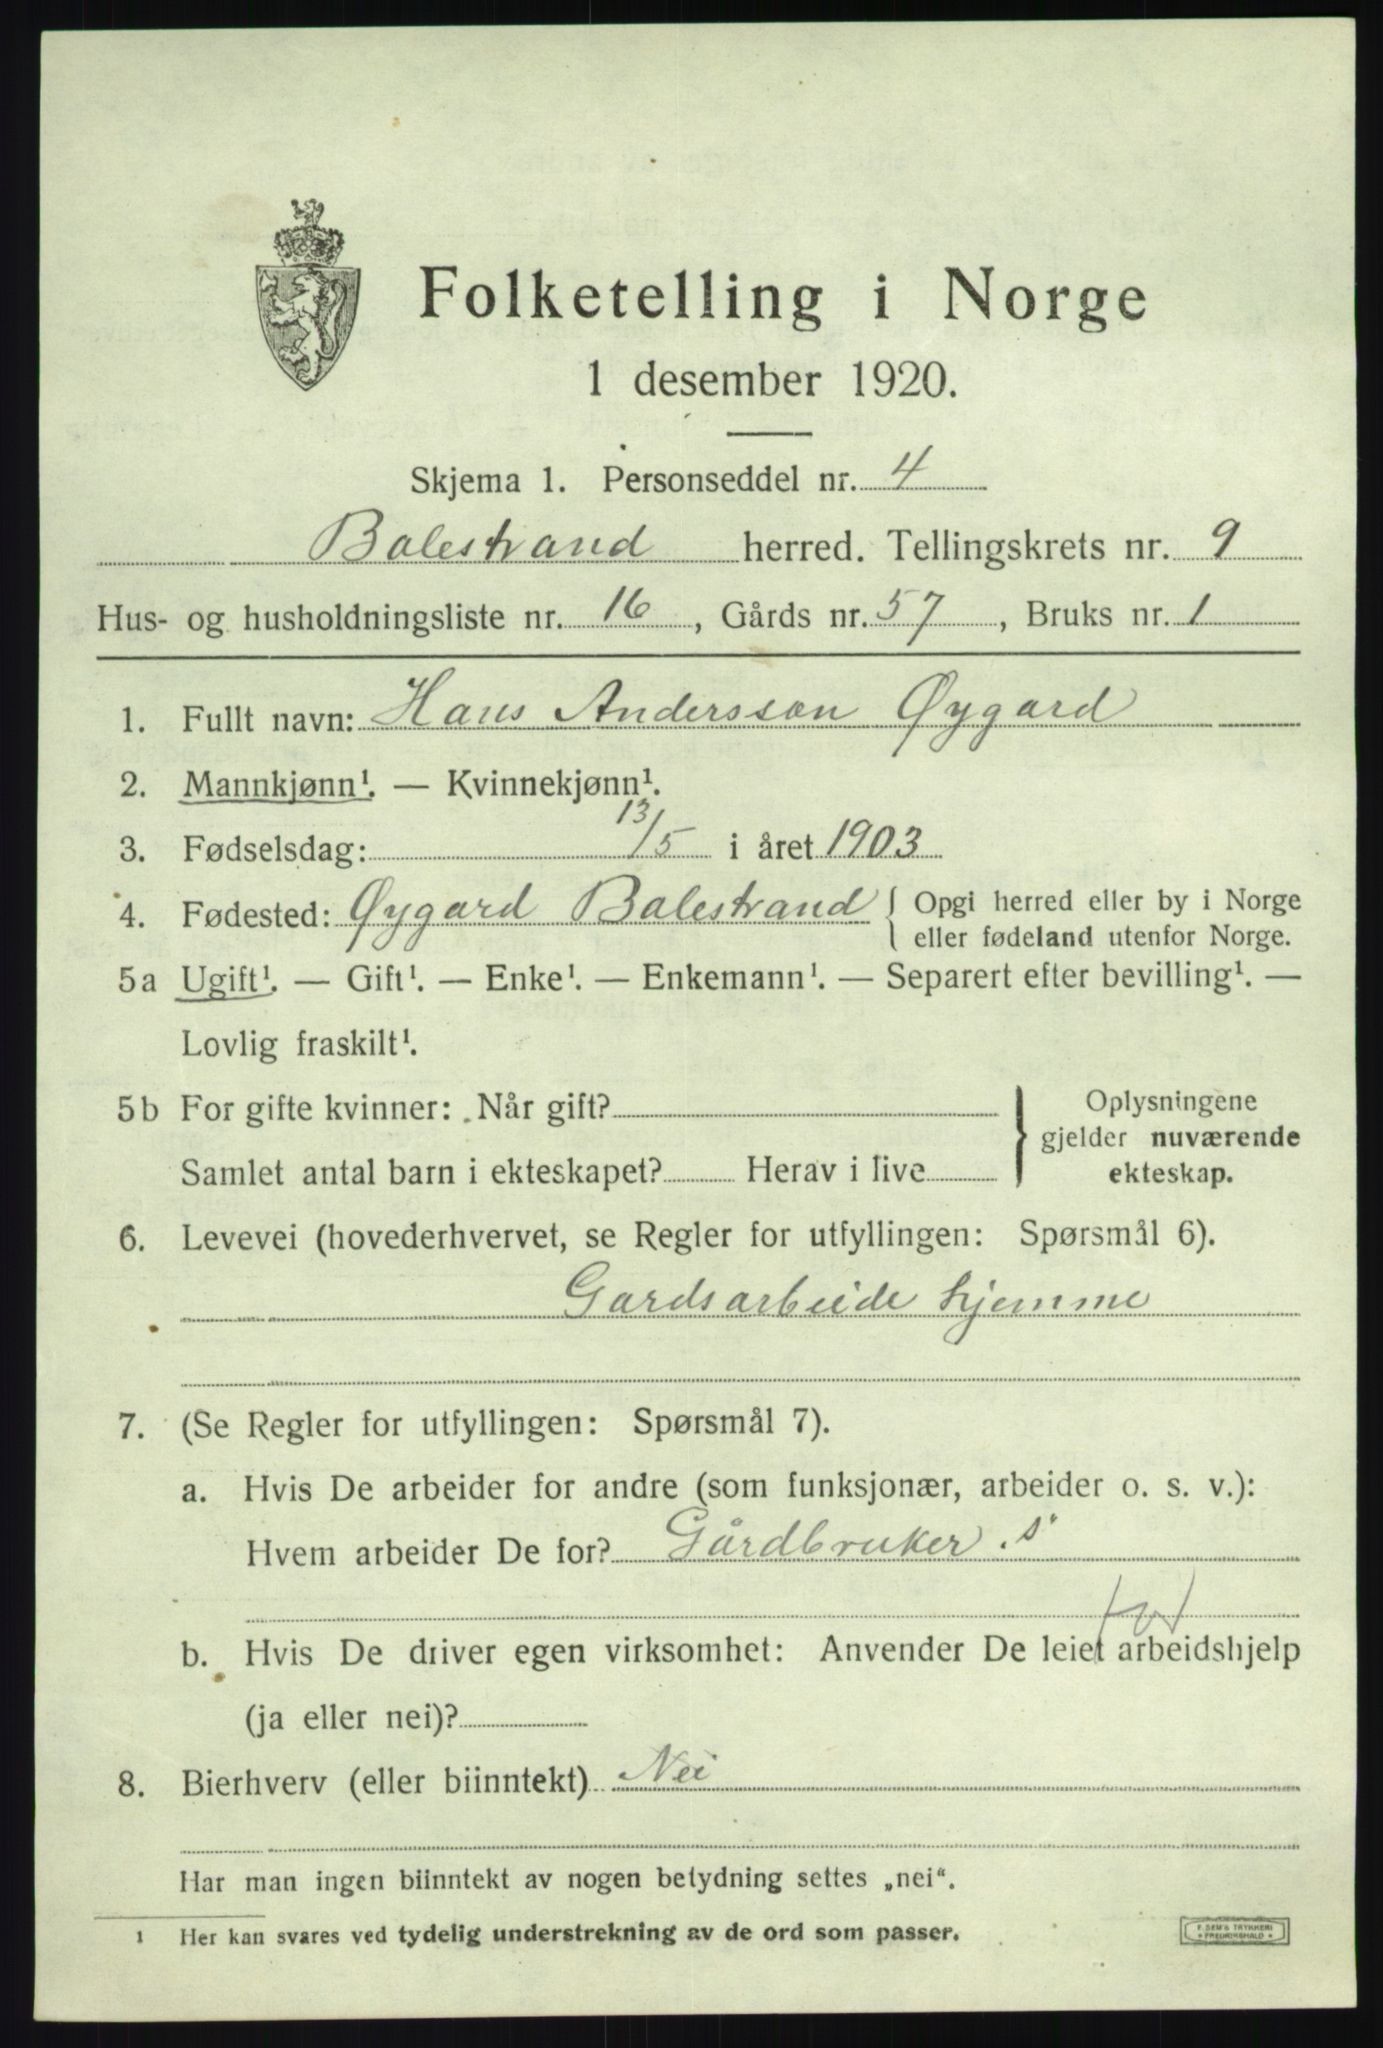 Folketelling i Norge
1 desember 1920.
Skjema 1. Personseddel nr. 4
Balestrand herred. Tellingskrets nr. 9
Hus- og husholdningsliste nr. 16, Gårds nr. 57, Bruks nr. 1
1. Fullt navn: Hans Andersson Øygard
2. Mannkjønn¹. — Kvinnekjønn¹.
3. Fødselsdag: 13/5 i året 1903
4. Fødested: Øygard Balestrand { Opgi herred eller by i Norge
eller fødeland utenfor Norge.
5a Ugift¹. — Gift¹. — Enke¹. — Enkemann¹. — Separert efter bevilling¹. —
Lovlig fraskilt¹.
5b For gifte kvinner: Når gift? } Oplysningene
gjelder nuværende
Samlet antal barn i ekteskapet? Herav i live
ekteskap.
6. Levevei (hovederhvervet, se Regler for utfyllingen: Spørsmål 6).
Gardsarbeide hjemme
7. (Se Regler for utfyllingen: Spørsmål 7).
a. Hvis De arbeider for andre (som funksjonær, arbeider o. s. v.):
Hvem arbeider De for? Gårdbruker . s
b. Hvis De driver egen virksomhet: Anvender De leiet arbeidshjelp
(ja eller nei)?
8. Bierhverv (eller biinntekt) Nei
Har man ingen biinntekt av nogen betydning settes „nei“.
1 Her kan svares ved tydelig understrekning av de ord som passer.
F. SEM'S TRYKKERI
FREDRIKSHALD